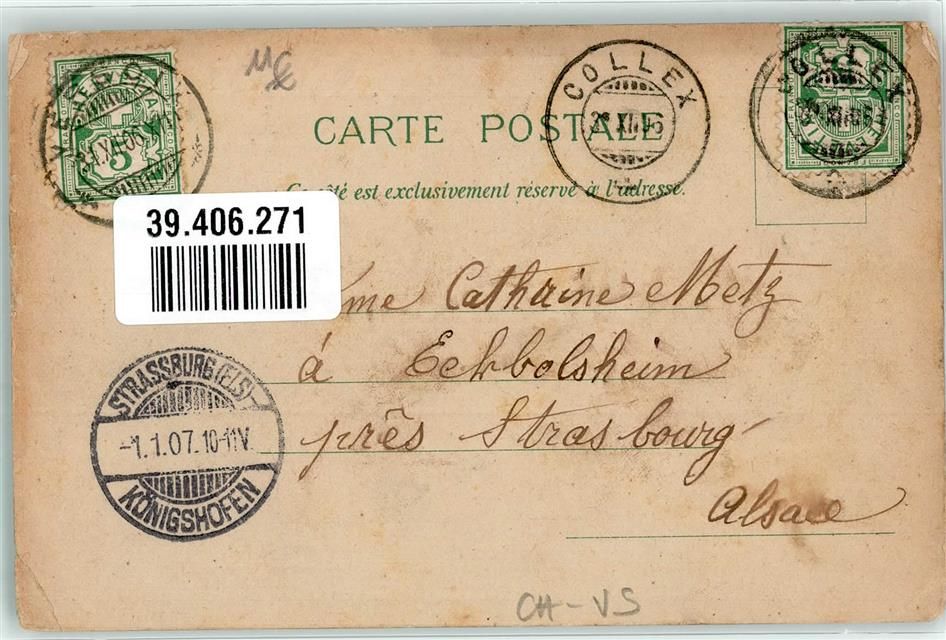 CARTE POSTALE
Ce côté est exclusivement réservé à l'adresse.
COLLEX
COLLEX
39.406.271
me Cathrine Metz
à Eckbolsheim
près Strasbourg
Alsace
STRASSBURG (ELS)
-1.1.07.10-11V.
KÖNIGSHOFEN
5
CH-VS